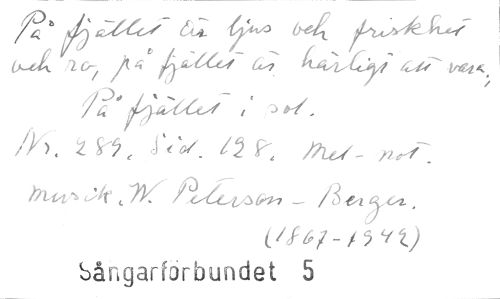 På fjället är ljus och friskhet
och ro, på fjället är härligt att vara;
På fjället i sol.
Nr. 289. Sid. 128. Mel-not.
Musik. W. Peterson-Berger.
(1867-1942)
Sångarförbundet 5